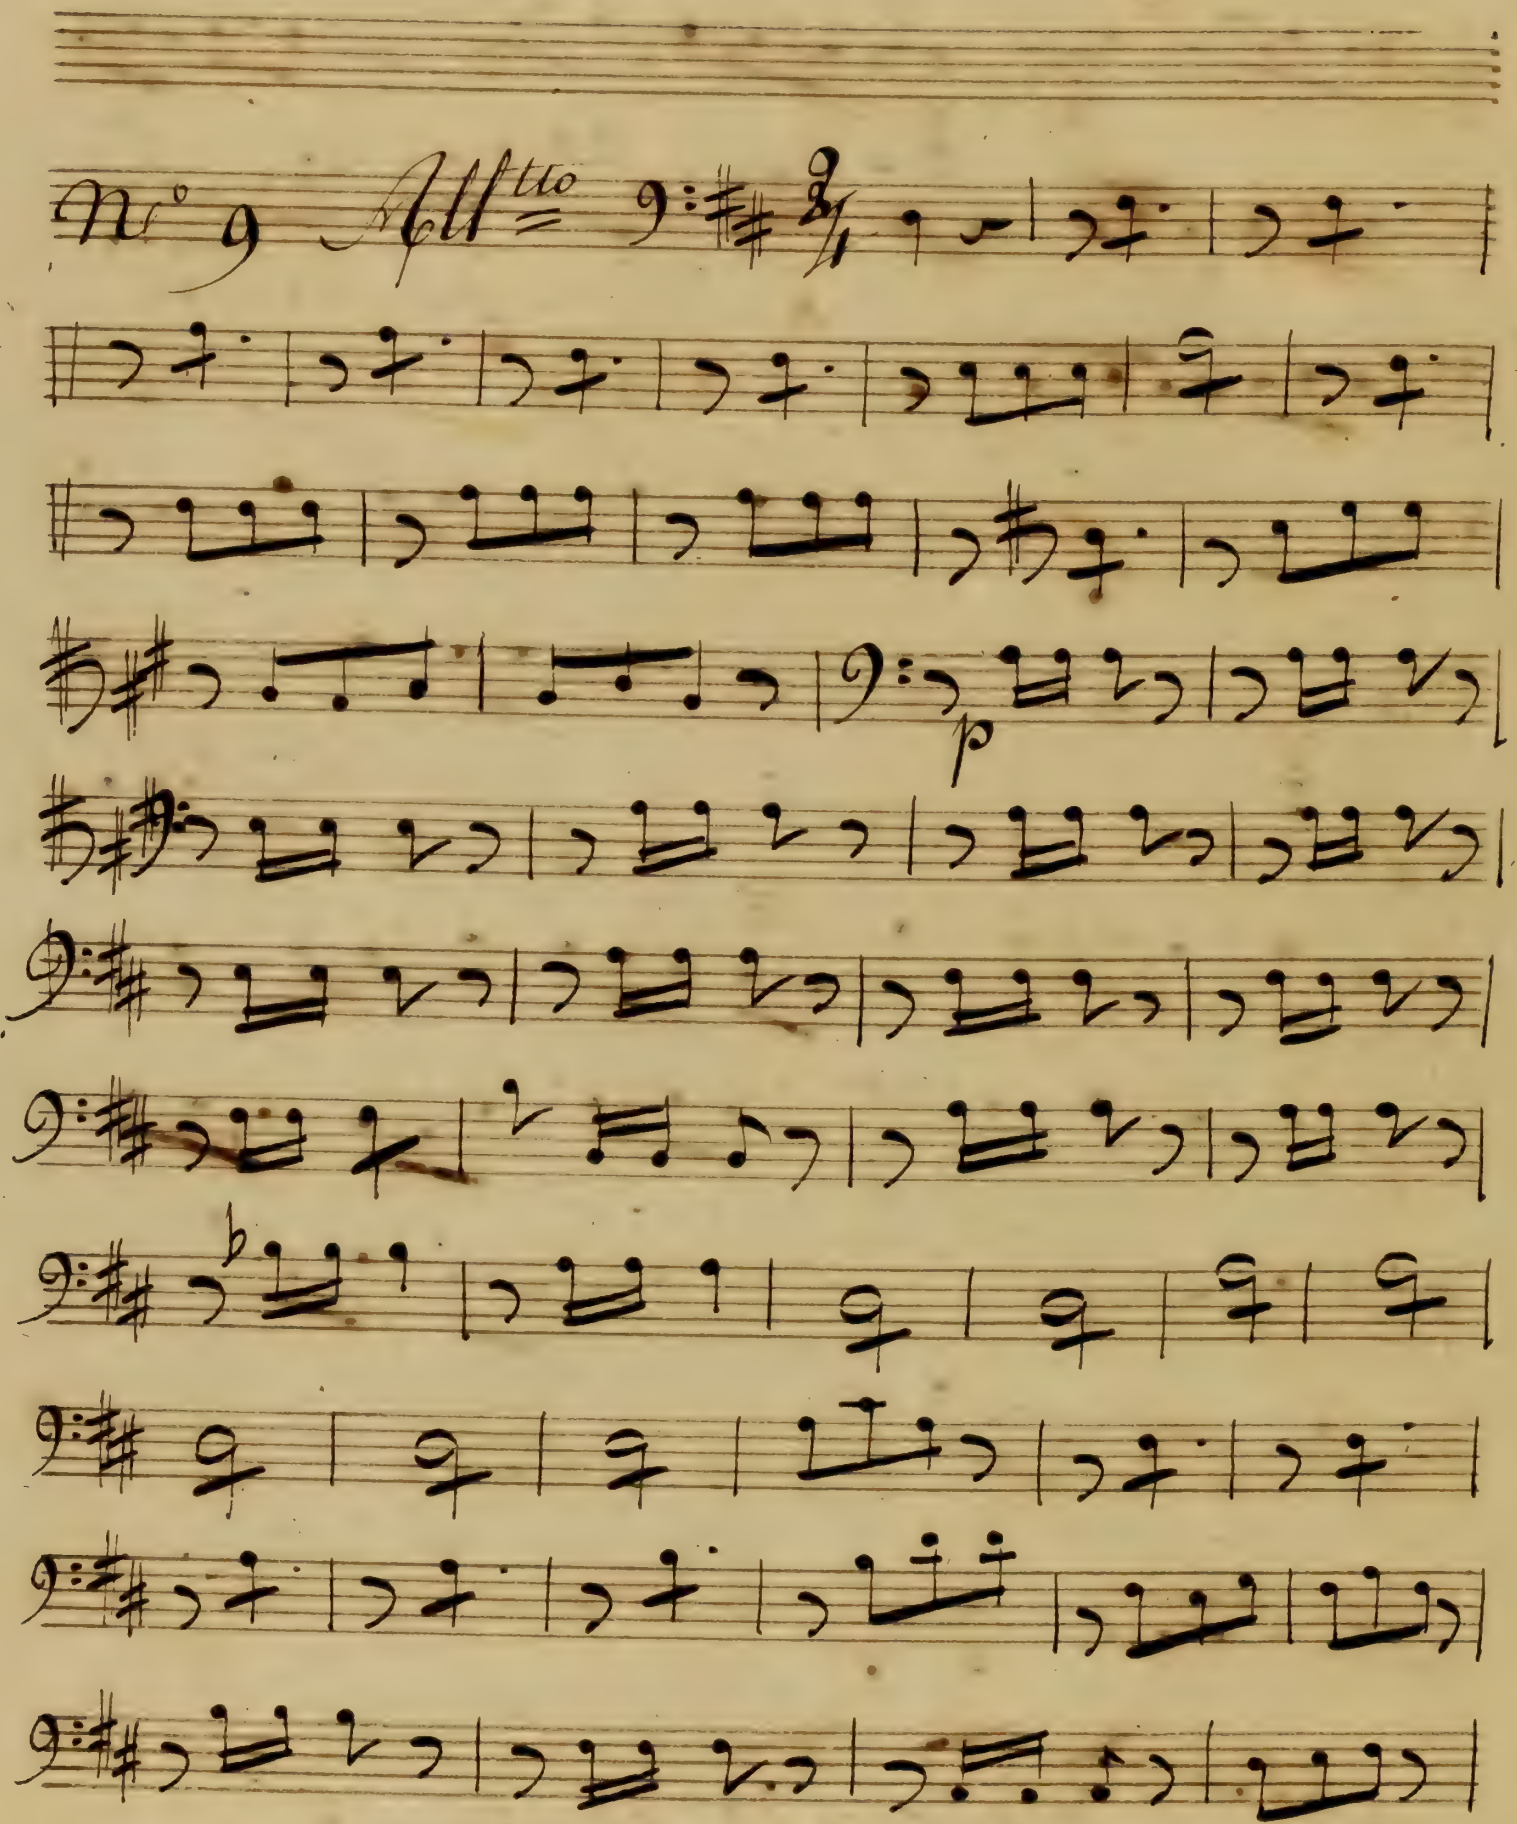 No 9 Alltto
p